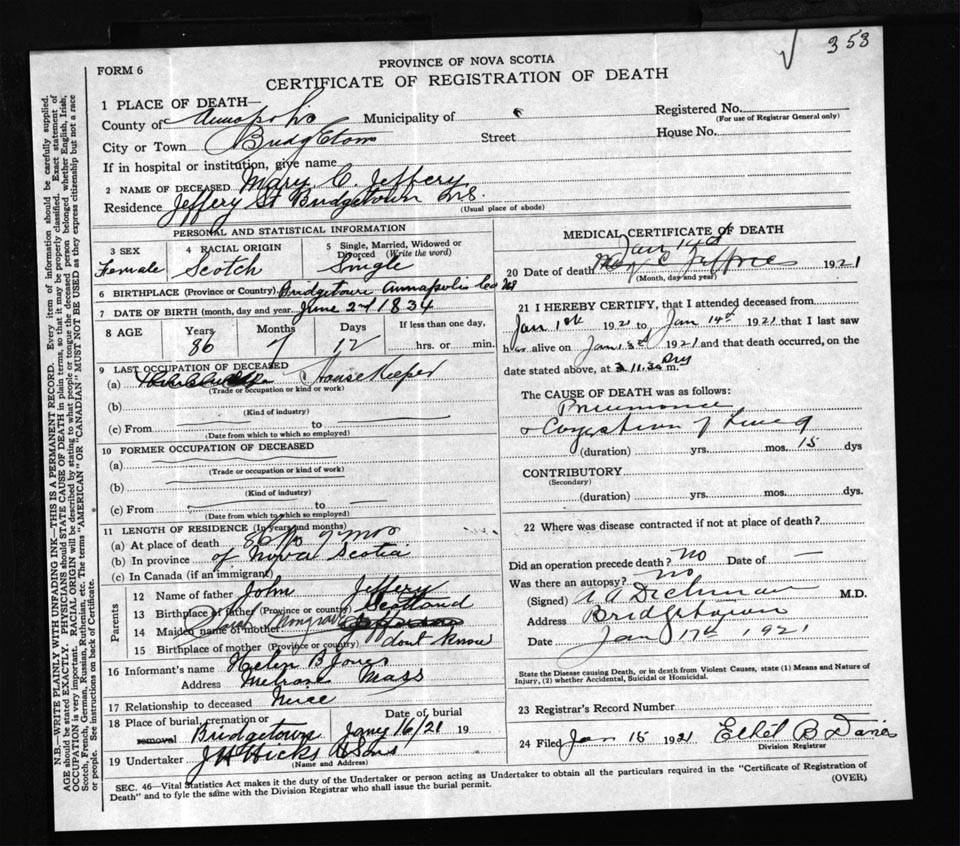 353
PROVINCE OF NOVA SCOTIA
FORM 6
CERTIFICATE OF REGISTRATION OF DEATH
1 PLACE OF DEATH—
County of Annapolis Municipality of Registered No.
(For use of Registrar General only)
City or Town Bridgetown Street House No.
If in hospital or institution, give name
2 NAME OF DECEASED Mary C. Jeffery
Residence Jeffery St Bridgetown N.S.
(Usual place of abode)
PERSONAL AND STATISTICAL INFORMATION
3 SEX 4 RACIAL ORIGIN 5 Single, Married, Widowed or Divorced (Write the word)
Female Scotch Single
6 BIRTHPLACE (Province or Country) Bridgetown Annapolis Co NS
7 DATE OF BIRTH (month, day and year) June 2nd 1834
8 AGE Years Months Days If less than one day,
86 7 12 hrs. or min.
9 LAST OCCUPATION OF DECEASED
(a) House Keeper
(Trade or occupation or kind or work)
(b)
(Kind of industry)
(c) From to
(Date from which to which so employed)
10 FORMER OCCUPATION OF DECEASED
(a)
(Trade or occupation or kind of work)
(b)
(Kind of industry)
(c) From to
(Date from which to which so employed)
11 LENGTH OF RESIDENCE (In years and months)
(a) At place of death 86 7 mos
(b) In province of Nova Scotia
(c) In Canada (if an immigrant)
Parents
12 Name of father John Jeffery
13 Birthplace of father (Province or country) Scotland
14 Maiden name of mother Sarah
15 Birthplace of mother (Province or country) dont know
16 Informant's name Helen B Jones
Address Melrose Mass
17 Relationship to deceased Neice
18 Place of burial, cremation or removal Date of burial
Bridgetown Jany 16/21 19
19 Undertaker J H Hicks & Sons
(Name and Address)
MEDICAL CERTIFICATE OF DEATH
Jan 14th
20 Date of death 1921
(Month, day and year)
21 I HEREBY CERTIFY, that I attended deceased from
Jan 1st 1921 to Jan 14th 1921 that I last saw
her alive on Jan 1921 and that death occurred, on the
date stated above, at 11.30 m.
The CAUSE OF DEATH was as follows:
Pneumonia
& Congestion of Lung
(duration) yrs. mos. 15 dys
CONTRIBUTORY
(Secondary)
(duration) yrs. mos. dys.
22 Where was disease contracted if not at place of death?
Did an operation precede death? no Date of
Was there an autopsy? no
(Signed) M.D.
Address Bridgetown
Date Jan 17th 1921
State the Disease causing Death, or in death from Violent Causes, state (1) Means and Nature of
Injury, (2) whether Accidental, Suicidal or Homicidal.
23 Registrar's Record Number
24 Filed Jan 15 1921 Ethel B Davies
Division Registrar
SEC. 46—Vital Statistics Act makes it the duty of the Undertaker or person acting as Undertaker to obtain all the particulars required in the "Certificate of Registration of
Death" and to fyle the same with the Division Registrar who shall issue the burial permit.
(OVER)
N.B.—WRITE PLAINLY WITH UNFADING INK—THIS IS A PERMANENT RECORD. Every item of information should be carefully supplied.
AGE should be stated EXACTLY. PHYSICIANS should STATE CAUSE OF DEATH in plain terms, so that it may be properly classified. Exact statement of
OCCUPATION is very important. RACIAL ORIGIN will be described by stating to what people or tongue the deceased person belonged whether English, Irish,
Scotch, French, German, Russian, Ruthenian, etc. The terms "AMERICAN" OR "CANADIAN" MUST NOT BE USED as they express citizenship but not a race
or people. See instructions on back of Certificate.